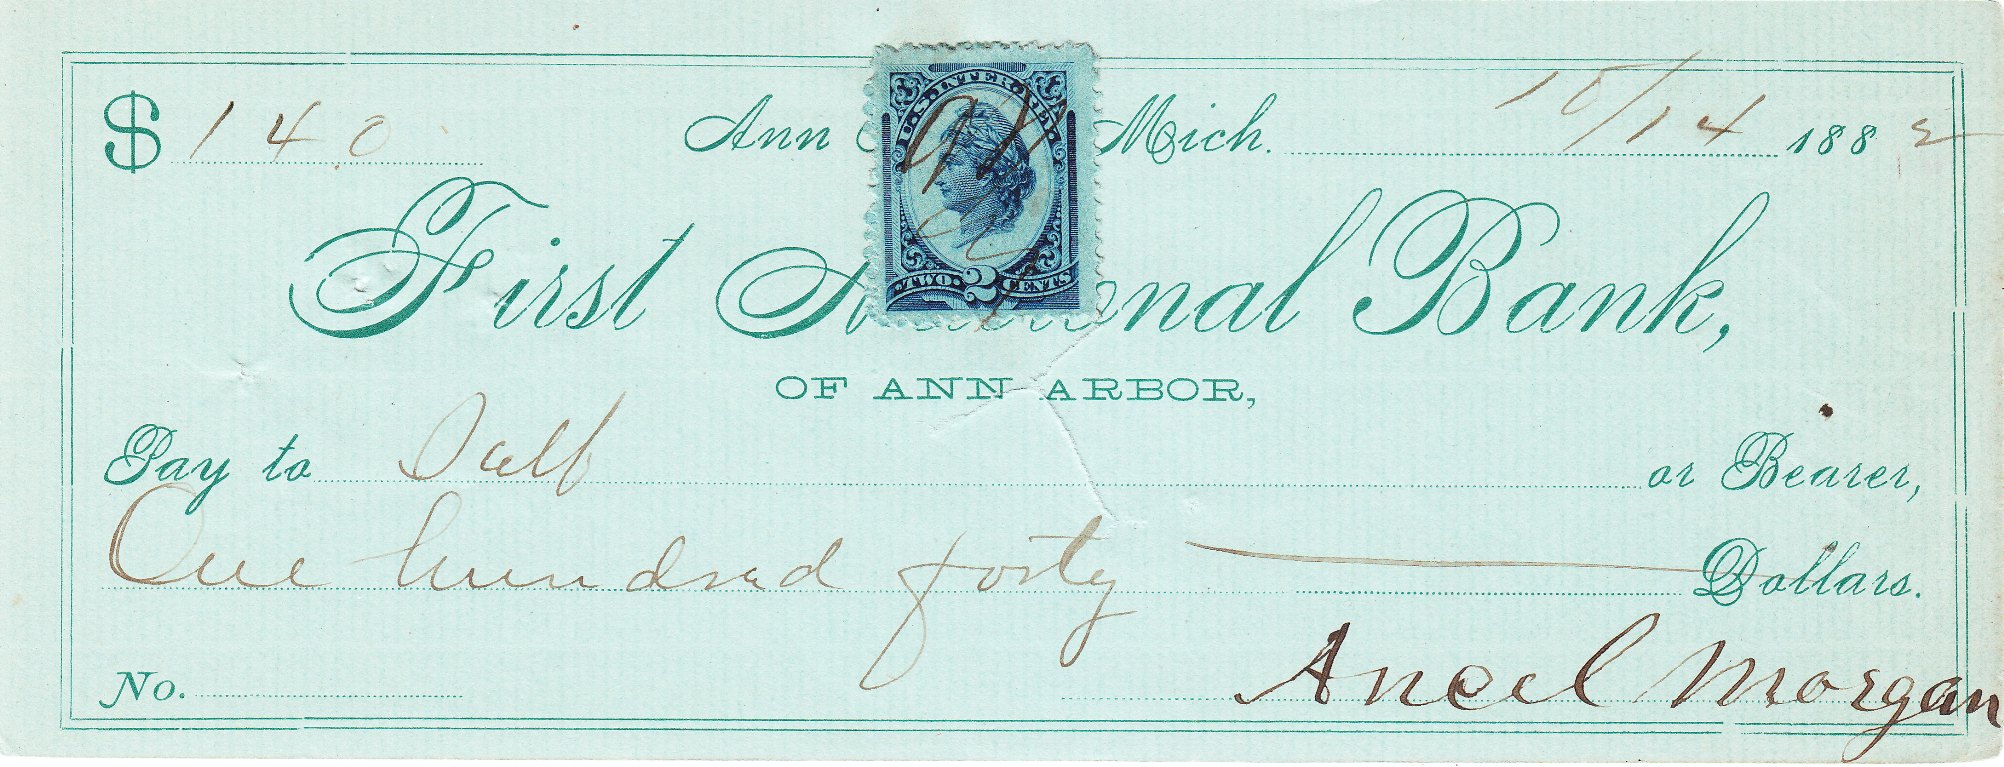 $ 140 Ann Mich. 10/14 1882
U.S. INTER. REV.
TWO 2 CENTS
First National Bank,
OF ANN ARBOR,
Pay to Self or Bearer,
One hundred forty Dollars.
No. Ancel Morgan